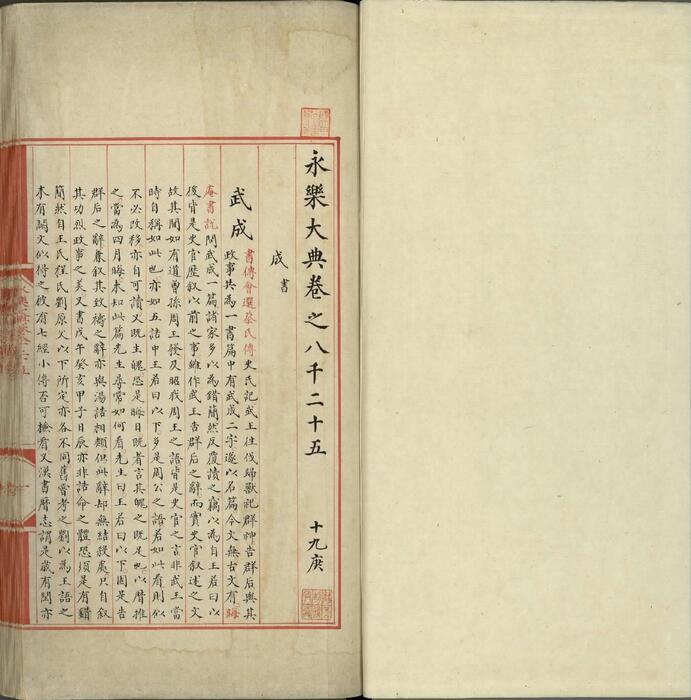 永樂大典卷之八千二十五 十九庚
成書
武成
書傳會選蔡氏傳史氏記武王往伐歸獸祀群神告群后與其
政事共為一書篇中有武成二字遂以名篇今文無古文有晦
庵書說問武成一篇諸家多以為錯簡然反覆讀之竊以為自王若曰以
後皆是史官歷敘以前之事雖作武王告群后之辭而實史官敘述之文
故其間如有道曾孫周王發及昭我周王之語皆是史官之言非武王當
時自稱如此也亦如五誥中王若曰以下多是周公之語若如此看則似
不必改移亦自可讀又既生魄恐是晦日既者言其魄之既足也以曆推
之當為四月晦未知此篇先生尋常如何看先生曰王若曰以下固是告
群后之辭兼敘其致禱之辭亦與湯誥相類但此辭却無結殺處只自敘
其功烈政事之美又書戊午癸亥甲子日辰亦非誥命之體恐須是有錯
簡然自王氏程氏劉原父以下所定亦各不同舊嘗考之劉以為王語之
末有闕文似得之彼有七經小傳否可撿看又漢書曆志謂是歲有閏亦